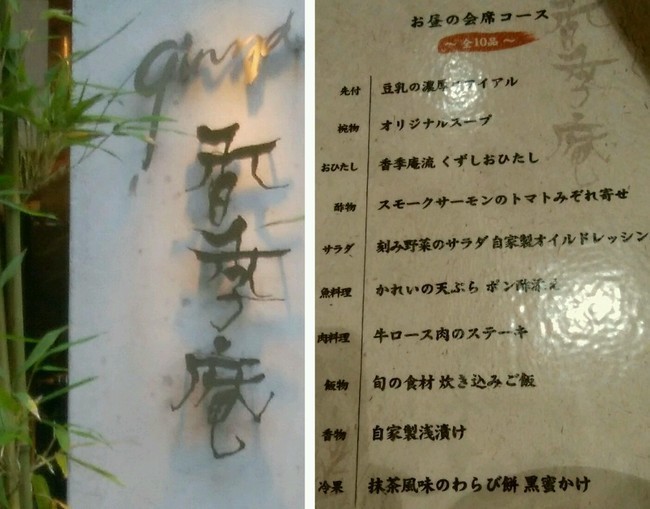 香季庵
お昼の会席コース
〜 全10品 〜
先付 豆乳の濃厚ロワイアル
椀物 オリジナルスープ
おひたし 香季庵流 くずしおひたし
酢物 スモークサーモンのトマトみぞれ寄せ
サラダ 刻み野菜のサラダ 自家製オイルドレッシン
魚料理 かれいの天ぷら ポン酢添え
肉料理 牛ロース肉のステーキ
飯物 旬の食材 炊き込みご飯
香物 自家製浅漬け
冷果 抹茶風味のわらび餅 黒蜜かけ
香季庵